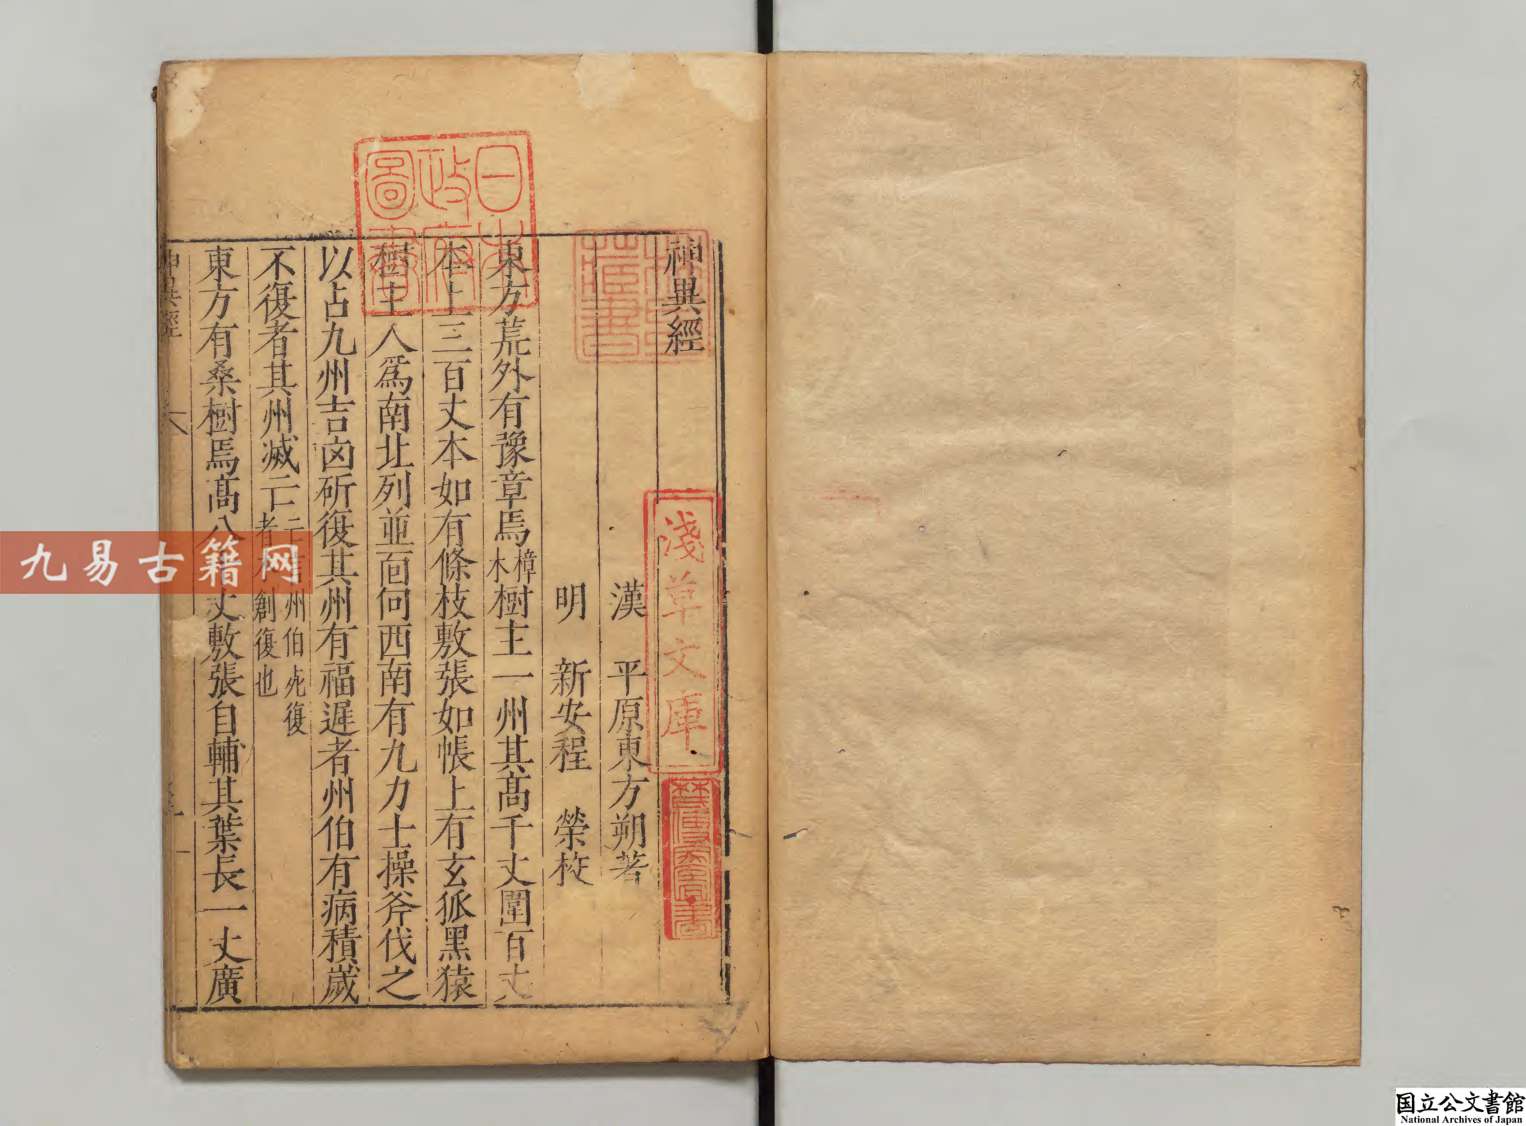 神異經
漢　平原東方朔著
明　新安程　榮校
東方荒外有豫章焉樟木樹主一州其高千丈圍百丈
本上三百丈本如有條枝敷張如帳上有玄狐黑猿
樹主人為南北列並面向西南有九力士操斧伐之
以占九州吉凶斫復其州有福遲者州伯有病積歲
不復者其州滅亡
州伯死復
者
創復也
東方有桑樹焉高八丈敷張自輔其葉長一丈廣
神異經
日本政府圖書
淺草文庫
藏書
九易古籍网
国立公文書館
National Archives of Japan